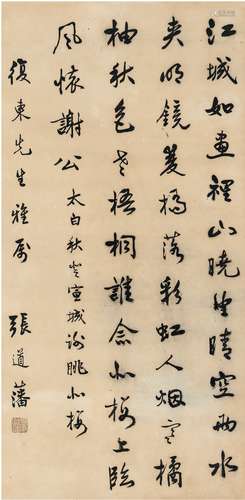 江城如畫裡山曉望晴空兩水
夾明鏡雙橋落彩虹人烟寒橘
柚秋色老梧桐誰念北樓上臨
風懷謝公 太白秋登宣城謝朓北樓
復東先生雅屬 張道藩